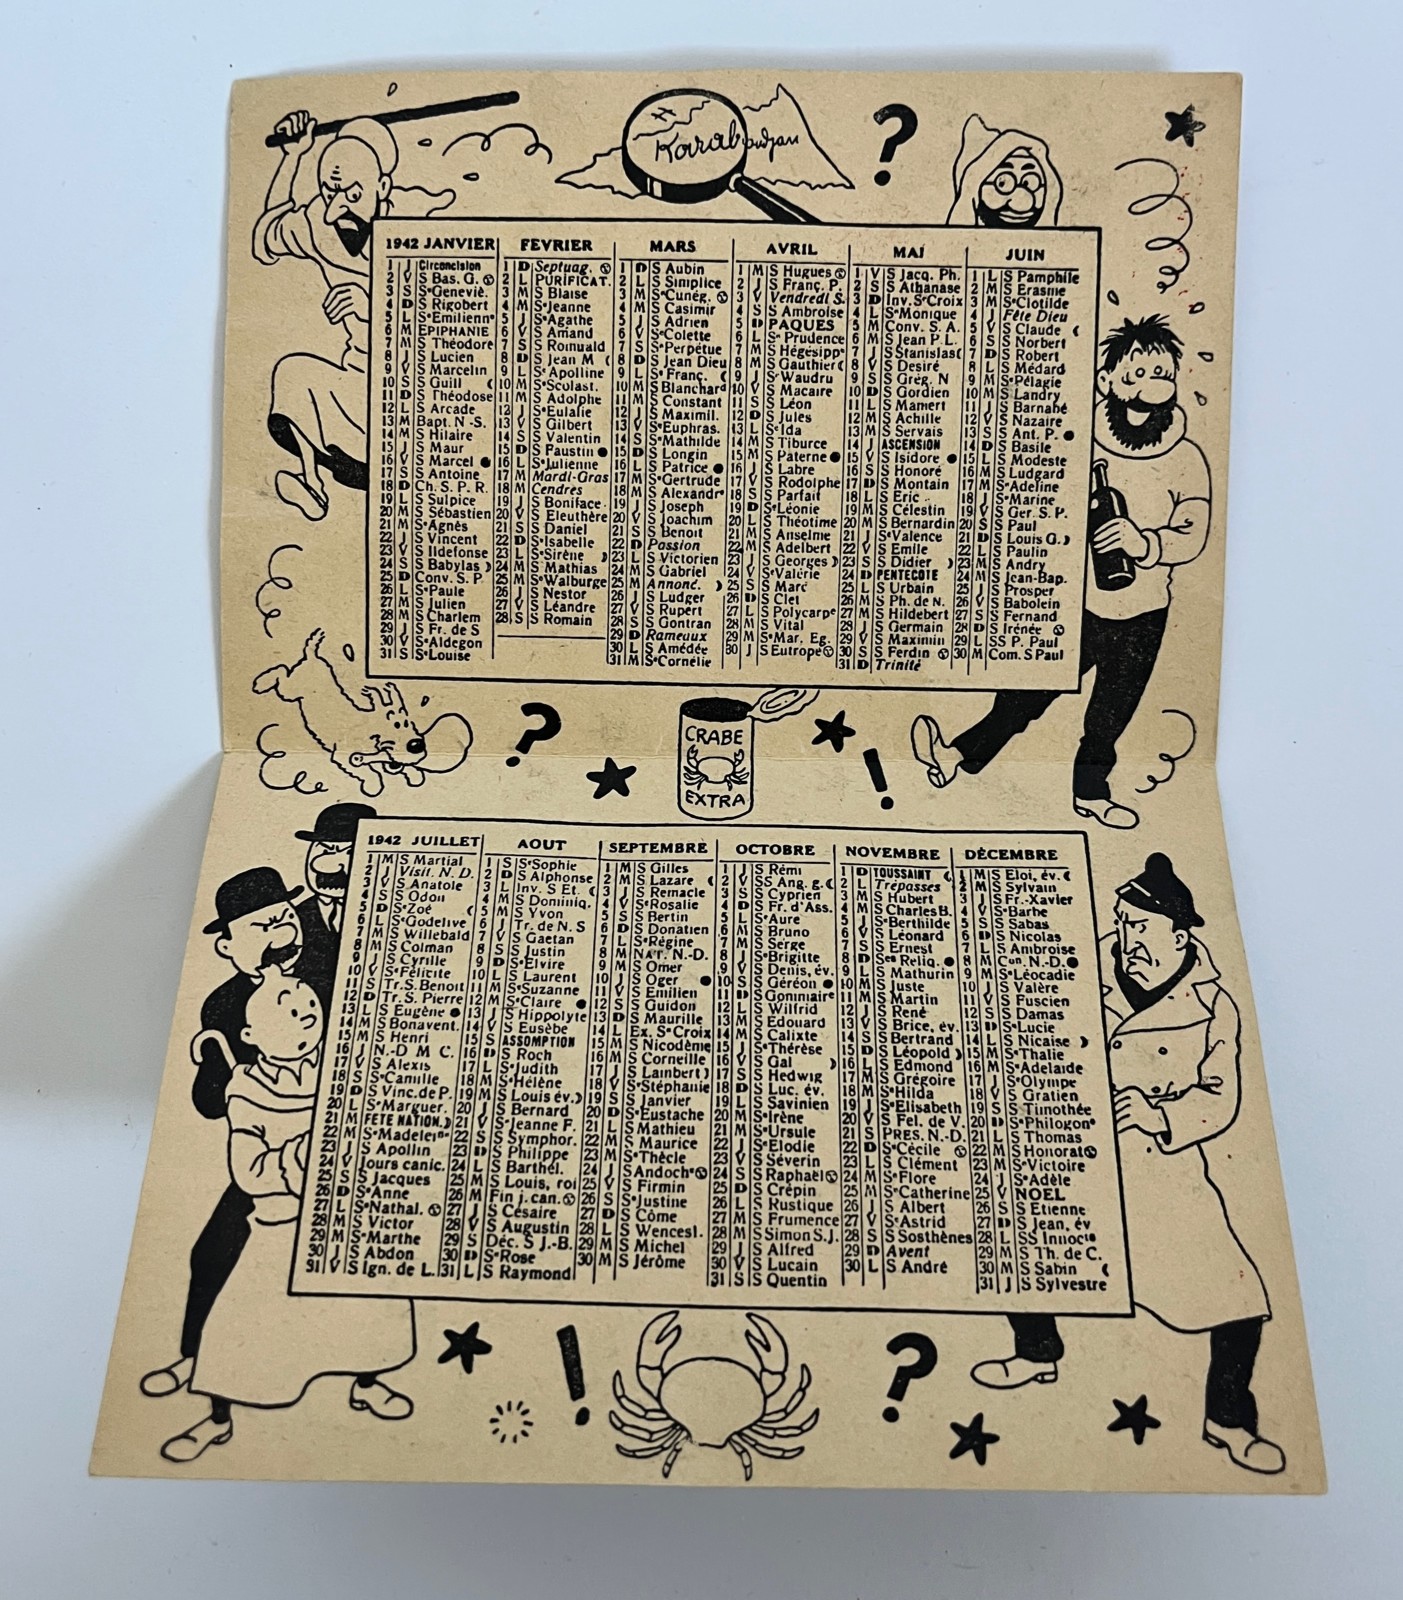 Karaboudjan
?
1942 JANVIER
1 J Circoncision
2 V S Bas. G.
3 S Sᵉ Geneviè.
4 D S Rigobert
5 L Sᵉ Emilienⁿᵉ
6 M EPIPHANIE
7 M S Théodore
8 J S Lucien
9 V S Marcelin
10 S S Guill
11 D S Théodose
12 L S Arcade
13 M Bapt. N.-S.
14 M S Hilaire
15 J S Maur
16 V S Marcel
17 S S Antoine
18 D Ch. S. P. R.
19 L S Sulpice
20 M S Sébastien
21 M Sᵉ Agnès
22 J S Vincent
23 V S Ildefonse
24 S S Babylas
25 D Conv. S. P
26 L Sᵉ Paule
27 M S Julien
28 M S Charlem
29 J S Fr. de S
30 V Sᵉ Aldegon
31 S Sᵉ Louise
FEVRIER
1 D Septuag.
2 L PURIFICAT.
3 M S Blaise
4 M Sᵉ Jeanne
5 J Sᵉ Agathe
6 V S Amand
7 S S Romuald
8 D S Jean M
9 L Sᵉ Apolline
10 M Sᵉ Scolast.
11 M S Adolphe
12 J Sᵉ Eulalie
13 V S Gilbert
14 S S Valentin
15 D S Faustin
16 L Sᵉ Julienne
17 M Mardi-Gras
18 M Cendres
19 J S Boniface
20 V S Eleuthère
21 S S Daniel
22 D Sᵉ Isabelle
23 L Sᵉ Sirène
24 M S Mathias
25 M Sᵉ Walburge
26 J S Nestor
27 V S Léandre
28 S S Romain
MARS
1 D S Aubin
2 L S Simplice
3 M Sᵉ Cunég.
4 M S Casimir
5 J S Adrien
6 V Sᵉ Colette
7 S Sᵉ Perpétue
8 D S Jean Dieu
9 L Sᵉ Franç.
10 M S Blanchard
11 M S Constant
12 J S Maximil.
13 V Sᵉ Euphras.
14 S Sᵉ Mathilde
15 D S Longin
16 L S Patrice
17 M Sᵉ Gertrude
18 M S Alexandʳᵉ
19 J S Joseph
20 V S Joachim
21 S S Benoit
22 D Passion
23 L S Victorien
24 M S Gabriel
25 M Annonc.
26 J S Ludger
27 V S Rupert
28 S S Gontran
29 D Rameaux
30 L S Amédée
31 M Sᵉ Cornélie
AVRIL
1 M S Hugues
2 J S Franç. P.
3 V Vendredi S.
4 S S Ambroise
5 D PAQUES
6 L Sᵉ Prudence
7 M S Hégésippᵉ
8 M S Gauthier
9 J Sᵉ Waudru
10 V S Macaire
11 S S Léon
12 D S Jules
13 L Sᵉ Ida
14 M S Tiburce
15 M S Paterne
16 J S Labre
17 V S Rodolphe
18 S S Parfait
19 D Sᵉ Léonie
20 L S Théotime
21 M S Anselme
22 M S Adelbert
23 J S Georges
24 V Sᵉ Valérie
25 S S Marc
26 D S Clet
27 L S Polycarpᵉ
28 M S Vital
29 M Sᵉ Mar. Eg.
30 J S Eutrope
MAI
1 V S Jacq. Ph.
2 S S Athanase
3 D Inv. Sᵉ Croix
4 L Sᵉ Monique
5 M Conv. S. A.
6 M S Jean P.L.
7 J S Stanislas
8 V S Desiré
9 S S Grég. N
10 D S Gordien
11 L S Mamert
12 M S Achille
13 M S Servais
14 J ASCENSION
15 V S Isidore
16 S S Honoré
17 D S Montain
18 L S Eric
19 M S Célestin
20 M S Bernardin
21 J Sᵉ Valence
22 V S Emile
23 S S Didier
24 D PENTECOTE
25 L S Urbain
26 M S Ph. de N.
27 M S Hildebert
28 J S Germain
29 V S Maximin
30 S S Ferdin
31 D Trinité
JUIN
1 L S Pamphile
2 M S Erasme
3 M Sᵉ Clotilde
4 J Fête Dieu
5 V S Claude
6 S S Norbert
7 D S Robert
8 L S Médard
9 M Sᵉ Pélagie
10 M S Landry
11 J S Barnabé
12 V S Nazaire
13 S S Ant. P.
14 D S Basile
15 L S Modeste
16 M S Ludgard
17 M Sᵉ Adeline
18 J Sᵉ Marine
19 V S Ger. S. P.
20 S S Paul
21 D S Louis G.
22 L S Paulin
23 M S Andry
24 M S Jean-Bap.
25 J S Prosper
26 V S Babolein
27 S S Fernand
28 D S Irénée
29 L SS P. Paul
30 M Com. S Paul
?
CRABE
EXTRA
!
1942 JUILLET
1 M S Martial
2 J Visit. N. D.
3 V S Anatole
4 S S Odon
5 D Sᵉ Zoé
6 L Sᵉ Godelive
7 M S Willebald
8 M S Colman
9 J S Cyrille
10 V Sᵉ Félicite
11 S Tr.S.Benoit
12 D Tr. S. Pierre
13 L S Eugène
14 M S Bonavent.
15 M S Henri
16 J N.-D M C.
17 V S Alexis
18 S Sᵉ Camille
19 D S Vinc.de P.
20 L Sᵉ Marguer.
21 M FETE NATION.
22 M Sᵉ Madeleiⁿᵉ
23 J S Apollin
24 V Jours canic.
25 S S Jacques
26 D Sᵉ Anne
27 L Sᵉ Nathal.
28 M S Victor
29 M Sᵉ Marthe
30 J S Abdon
31 V S Ign. de L.
AOUT
1 S Sᵉ Sophie
2 D S Alphonse
3 L Inv. S Et.
4 M S Dominiq.
5 M S Yvon
6 J Tr. de N. S
7 V S Gaetan
8 S S Justin
9 D Sᵉ Elvire
10 L S Laurent
11 M Sᵉ Suzanne
12 M Sᵉ Claire
13 J S Hippolyte
14 V S Eusèbe
15 S ASSOMPTION
16 D S Roch
17 L Sᵉ Judith
18 M Sᵉ Hélène
19 M S Louis év.
20 J S Bernard
21 V Sᵉ Jeanne F.
22 S S Symphor.
23 D S Philippe
24 L S Barthél.
25 M S Louis, roi
26 M Fin j. can.
27 J S Césaire
28 V S Augustin
29 S Déc. S J.-B.
30 D Sᵉ Rose
31 L S Raymond
SEPTEMBRE
1 M S Gilles
2 M S Lazare
3 J S Remacle
4 V Sᵉ Rosalie
5 S S Bertin
6 D S Donatien
7 L Sᵉ Régine
8 M NAT. N.-D.
9 M S Omer
10 J S Oger
11 V S Emilien
12 S S Guidon
13 D S Maurille
14 L Ex. Sᵉ Croix
15 M S Nicodème
16 M S Corneille
17 J S Lambert
18 V Sᵉ Stéphanie
19 S S Janvier
20 D Sᵉ Eustache
21 L S Mathieu
22 M S Maurice
23 M Sᵉ Thècle
24 J S Andochᵉ
25 V S Firmin
26 S Sᵉ Justine
27 D S Côme
28 L S Wencesl.
29 M S Michel
30 M S Jérôme
OCTOBRE
1 J S Rémi
2 V SS Ang. g.
3 S S Cyprien
4 D S Fr. d'Ass.
5 L Sᵉ Aure
6 M S Bruno
7 M S Serge
8 J Sᵉ Brigitte
9 V S Denis, év.
10 S S Géréon
11 D S Gommaire
12 L S Wilfrid
13 M S Edouard
14 M S Calixte
15 J Sᵉ Thérèse
16 V S Gal
17 S S Hedwig
18 D S Luc. év.
19 L S Savinien
20 M Sᵉ Irène
21 M Sᵉ Ursule
22 J Sᵉ Elodie
23 V S Séverin
24 S S Raphaël
25 D S Crépin
26 L S Rustique
27 M S Frumence
28 M S Simon S.J.
29 J S Alfred
30 V S Lucain
31 S S Quentin
NOVEMBRE
1 D TOUSSAINT
2 L Trépasses
3 M S Hubert
4 M S Charles B.
5 J Sᵉ Berthilde
6 V S Léonard
7 S S Ernest
8 D Sᵉˢ Reliq.
9 L S Mathurin
10 M S Juste
11 M S Martin
12 J S René
13 V S Brice, év.
14 S S Bertrand
15 D S Léopold
16 L S Edmond
17 M S Grégoire
18 M Sᵉ Hilda
19 J Sᵉ Elisabeth
20 V S Fel. de V.
21 S PRES. N.-D.
22 D Sᵉ Cécile
23 L S Clément
24 M Sᵉ Flore
25 M Sᵉ Catherine
26 J S Albert
27 V Sᵉ Astrid
28 S S Sosthènes
29 D Avent
30 L S André
DÉCEMBRE
1 M S Eloi, év.
2 M S Sylvain
3 J S Fr.-Xavier
4 V Sᵉ Barbe
5 S S Sabas
6 D S Nicolas
7 L S Ambroise
8 M Cᵒⁿ. N.-D.
9 M Sᵉ Léocadie
10 J S Valère
11 V S Fuscien
12 S S Damas
13 D Sᵉ Lucie
14 L S Nicaise
15 M Sᵉ Thalie
16 M Sᵉ Adelaide
17 J Sᵉ Olympe
18 V S Gratien
19 S S Timothée
20 D Sᵉ Philogonᵉ
21 L S Thomas
22 M S Honorat
23 M Sᵉ Victoire
24 J Sᵉ Adèle
25 V NOEL
26 S S Etienne
27 D S Jean, év
28 L SS Innocᵗˢ
29 M S Th. de C.
30 M S Sabin
31 J S Sylvestre
!
?